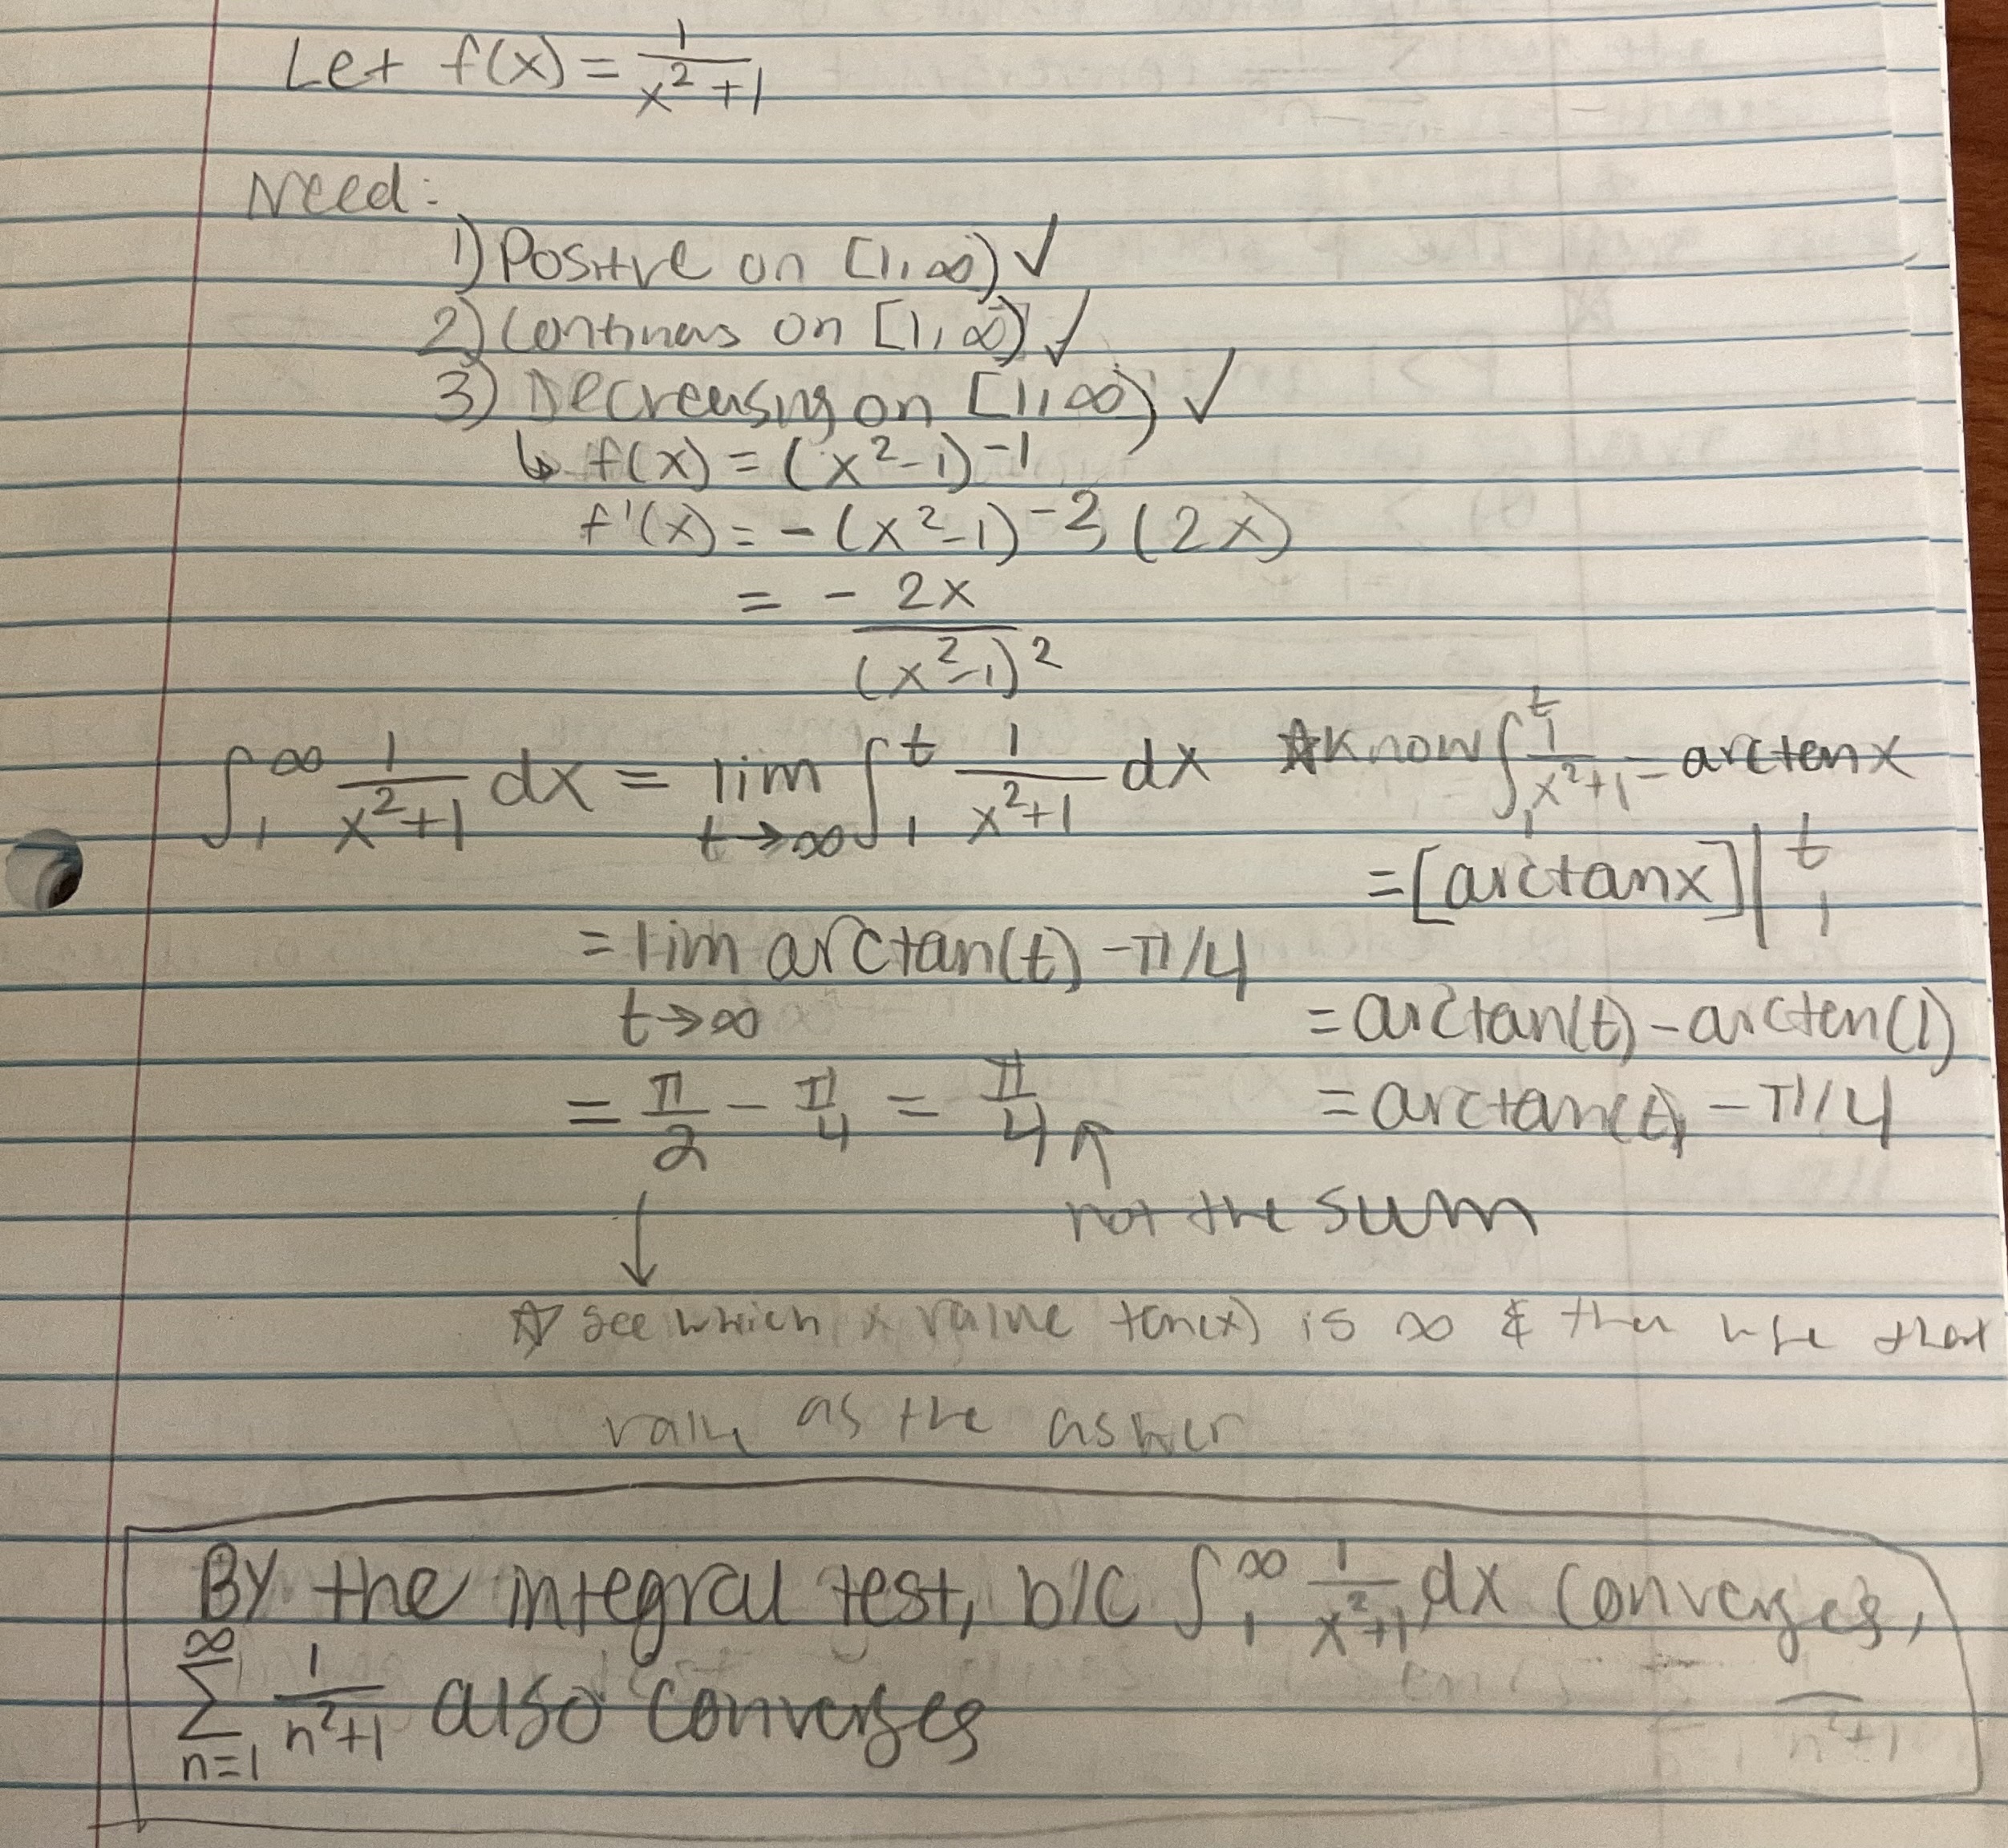 Let f(x) = 1/(x² + 1)
Need:
1) Positive on [1, ∞) ✓
2) Continuous on [1, ∞) ✓
3) Decreasing on [1, ∞) ✓
↳ f(x) = (x² - 1)⁻¹
f'(x) = - (x² - 1)⁻² (2x)
= - 2x/(x² - 1)²
∫₁^∞ 1/(x²+1) dx = lim t→∞ ∫₁^t 1/(x²+1) dx ☆ Know ∫₁^t 1/(x²+1) = arctan x
= [arctan x] |₁^t
= lim t→∞ arctan(t) - π/4
= arctan(t) - arctan(1)
= π/2 - π/4 = π/4
= arctan(t) - π/4
↑ not the sum
↓
☆ see which x value tan(x) is ∞ & then use that
value as the asker
By the integral test, b/c ∫₁^∞ 1/(x²+1) dx converges,
∑ n=1 ^∞ 1/(n²+1) also converges